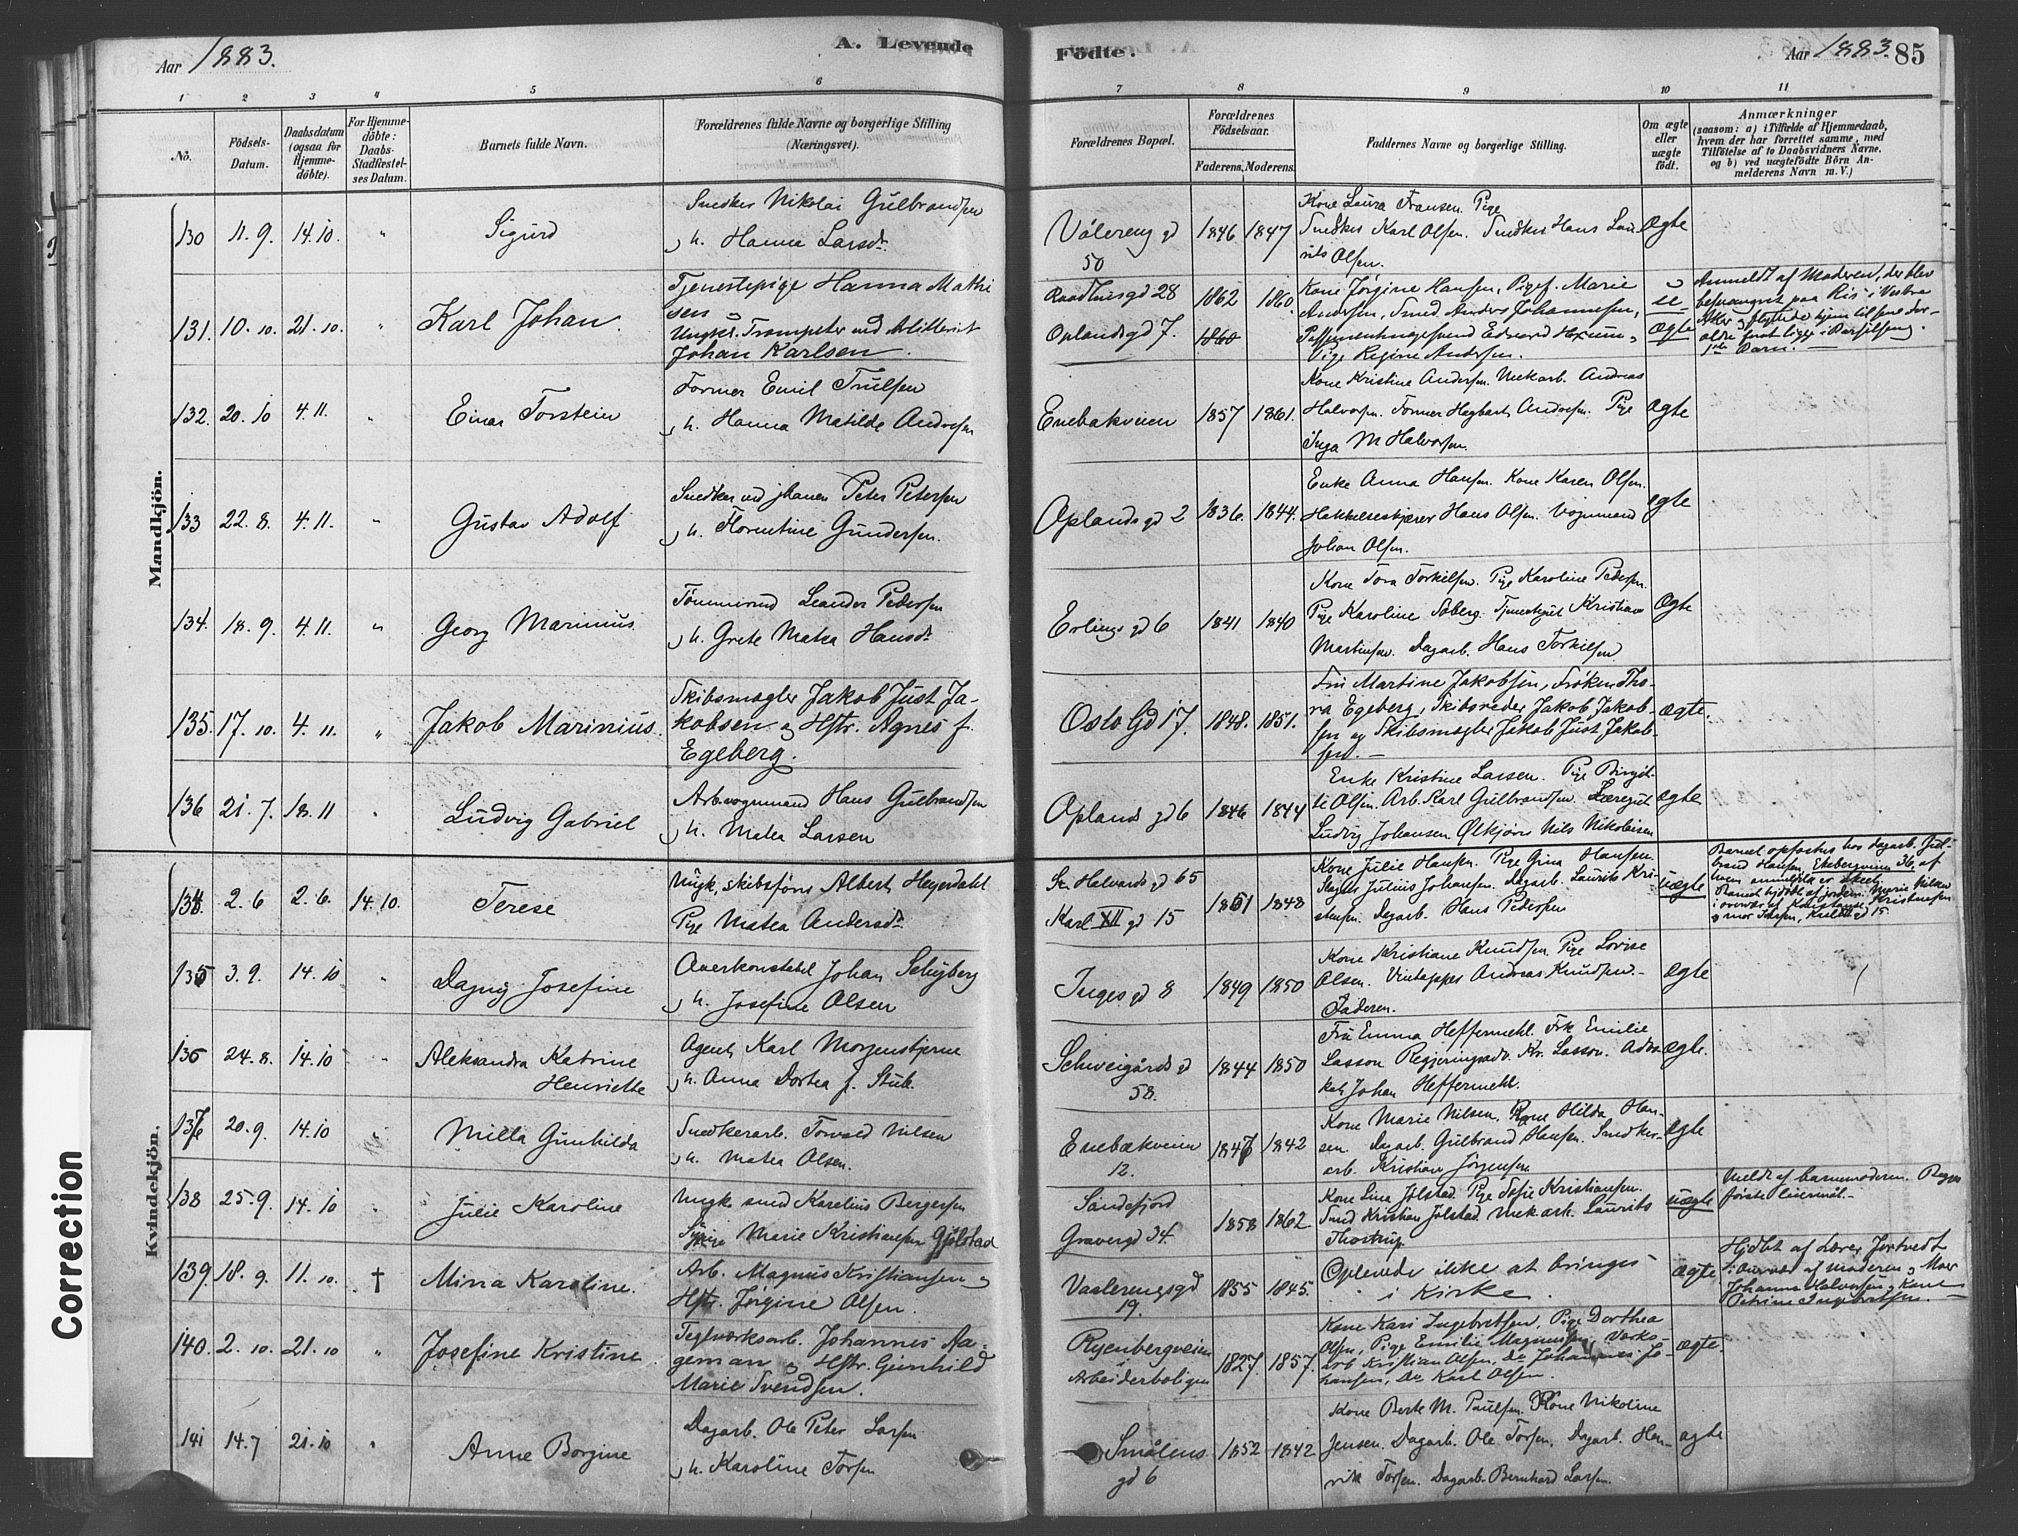 Aar 1883.
A. Levende
Födte.
Aar 1883.
85
1 2 3 4 5 6 7 8 9 10 11
No.
Födsels-
Datum.
Daabsdatum
(ogsaa for
Hjemme-
döbte).
For Hjemme-
döbte:
Daabs-
Stadfæstel-
ses Datum.
Barnets fulde Navn.
Forældrenes fulde Navne og borgerlige Stilling
(Næringsvei).
Forældrenes Bopæl.
Forældrenes
Födselsaar.
Faderens. Moderens.
Faddernes Navne og borgerlige Stilling.
Om ægte
eller
uægte
födt.
Anmærkninger
(saasom: a) i Tilfælde af Hjemmedaab,
hvem der har forrettet samme, med
Tilföielse af to Daabsvidners Navne,
og b) ved uægtefödte Börn An-
melderens Navn m. V.)
Mandkjön.
130 11.9. 14.10. " Sigurd
Snedker Nikolai Gulbrandsen
h. Hanna Larsd.
Vålereng gd
50
1846 1847
Kone Laura Fransen. Pige
Snedker Karl Olsen. Snedker Hans Lau-
rits Olsen.
Ægte
131. 10.10. 21.10. " Karl Johan.
Tjenestepige Hanna Mathi
sen
Ungk. Trompeter ved Artilleriet
Johan Karlsen.
Raadhusgd 28
Oplandsgd 7.
1862 1860.
1860
Kone Jørgine Hansen, Pige Marie
Andersen, Smed Anders Johannesen,
Edvard
Pige Regine Andersen.
U
Ægte
Anmeldt af Moderen, der blev
besvangret paa Ris i Vestre
Aker
1ste Barn.
132. 20.10 4.11. " Einar Torstein
Former Emil Trulsen
h. Hanna Matilde Andresen
Enebakveien
1857 1861.
Kone Kristine Andersen. Mekarb. Andreas
Halvorsen. Former Hagbart Andresen. Pige
Inga M Halvorsen.
ægte
133 22.8. 4.11. " Gustav Adolf
Snedker ved jbanen Peter Petersen
h. Florentine Gundersen.
Oplands gd 2
1836. 1844.
Enke Anna Hansen. Kone Karen Olsen.
Hakkelseskjærer Hans Olsen. Vognmand
Johan Olsen.
ægte
134. 18.9. 4.11. " Georg Marinius
Tømmermd Leander Pedersen
h. Grete Matea Hansd.
Erlings gd 6
1841 1840
Kone Tora Torkilsen. Pige Karoline Pedersen.
Pige Karoline Soberg. Tjenestegut Kristian
Martinsen. Dagarb. Hans Torkilsen.
Ægte
135. 17.10. 4.11. " Jakob Marinius.
Skibsmægler Jakob Just Ja-
kobsen og Hstr. Agnes f.
Egeberg.
Oslo Gd 17.
1848. 1851.
Fru Martine Jakobsen, Frøken Tho-
ra Egeberg, Skibsreder Jakob Jakob-
sen og Skibsmægler Jakob Just Jakob-
sen.
ægte.
136 21.7. 18.11 " Ludvig Gabriel
Arb.vognmand Hans Gulbrandsen
h. Matea Larsen
Oplands gd 6
1846 1844
Enke Kristine Larsen. Pige Birgit-
te Olsen. Arb. Karl Gulbrandsen. Læregut
Ludvig Johansen Ølkjører Nils Nikolaisen
ægte
Kvindekjön.
134. 2.6 2.6. 14.10. Terese
Ungk. skibsfører Albert Heyerdahl
Pige Matea Andersd.
St. Halvards gd 65
Karl XII gd 15
1851 1848
Kone Julie Hansen. Pige Gina Hansen.
Slagter Julius Johansen. Dagarb. Laurits Kri-
stensen. Dagarb. Hans Pedersen
uægte
Barnet opfostres hos dagarb. Gul-
brand Hansen, Ekebergveien 36, af
hvem anmeldelse er skeet.
Barnet hjdøbt af jordem. Marie Nilsen
135 3.9. 14.10 " Dagny Josefine
Overkonstabel Johan Schyberg
h. Josefine Olsen
Inges gd 8
1849 1850
Kone Kristiane Knudsen. Pige Lovise
Olsen. Vintapper Andreas Knudsen.
Faderen.
ægte
136 24.8. 14.10 " Aleksandra Katrine
Henriette
Agent Karl Morgenstjerne
h. Anna Dortea f. Stub.
Schweigårds gd
58.
1844 1850
Fru Emma Heffermehl. Frk Emilie
Lasson Regjeringsadv. Kr. Lasson. Advo-
kat Johan Heffermehl.
ægte.
137 20.9. 14.10 " Milla Gunhilda
Snedkerarb. Torvald Nilsen
h. Matea Olsen.
Enebækveien
12.
1847 1842
Kone Marie Nilsen. Kone Hilda Han-
sen. Dagarb. Gulbrand Hansen. Snedker-
arb. Kristian Jørgensen
ægte
138 25.9. 14.10 " Julie Karoline
Ungk. smed Karelius Bergersen
Pige Marie Kristiansen Gjölstad
Sandefjord
Gravergd 34.
1858 1862
Kone Lina Jølstad. Pige Sofie Kristiansen.
Smed Kristian Jølstad. Mekarb. Laurits
Thostrup
uægte
Meldt af barnemoderen. Begges
første leiermål.
139. 18.9. 11.10. † Mina Karoline.
Arb. Magnus Kristiansen og
Hstr. Jørgine Olsen.
Vaalerengsgd
19.
1855 1845.
Oplevede ikke at bringes
i Kirke.
ægte
Hjdbt af Lærer Jortvedt
i Overvær af Moderen og Mor
Johanna Halvorsen og Kone
Petrine Ingebretsen.
140. 2.10. 21.10 " Josefine Kristine
Teglværksarb. Johannes Aa-
geman og Hstr. Gunhild
Marie Svendsen.
Ryenbergveien
i
Arbeiderboligen
1827. 1857.
Kone Kari Ingebretsen, Pige Dorthea
Olsen, Pige Emilie Magnussen, Værks-
arb Kristian Olsen, Do Johannes Jo-
hansen, Do Karl Olsen.
ægte.
141 14.7 21.10 " Anne Borgine
Dagarb. Ole Peter Larsen
h. Karoline Torsen
Smålens
gd 6
1852 1842
Kone Berte M. Paulsen. Kone Nikoline
Jensen. Dagarb. Ole Torsen. Dagarb. Hen-
rik Torsen. Dagarb. Bernhard Larsen.
ægte
Correction